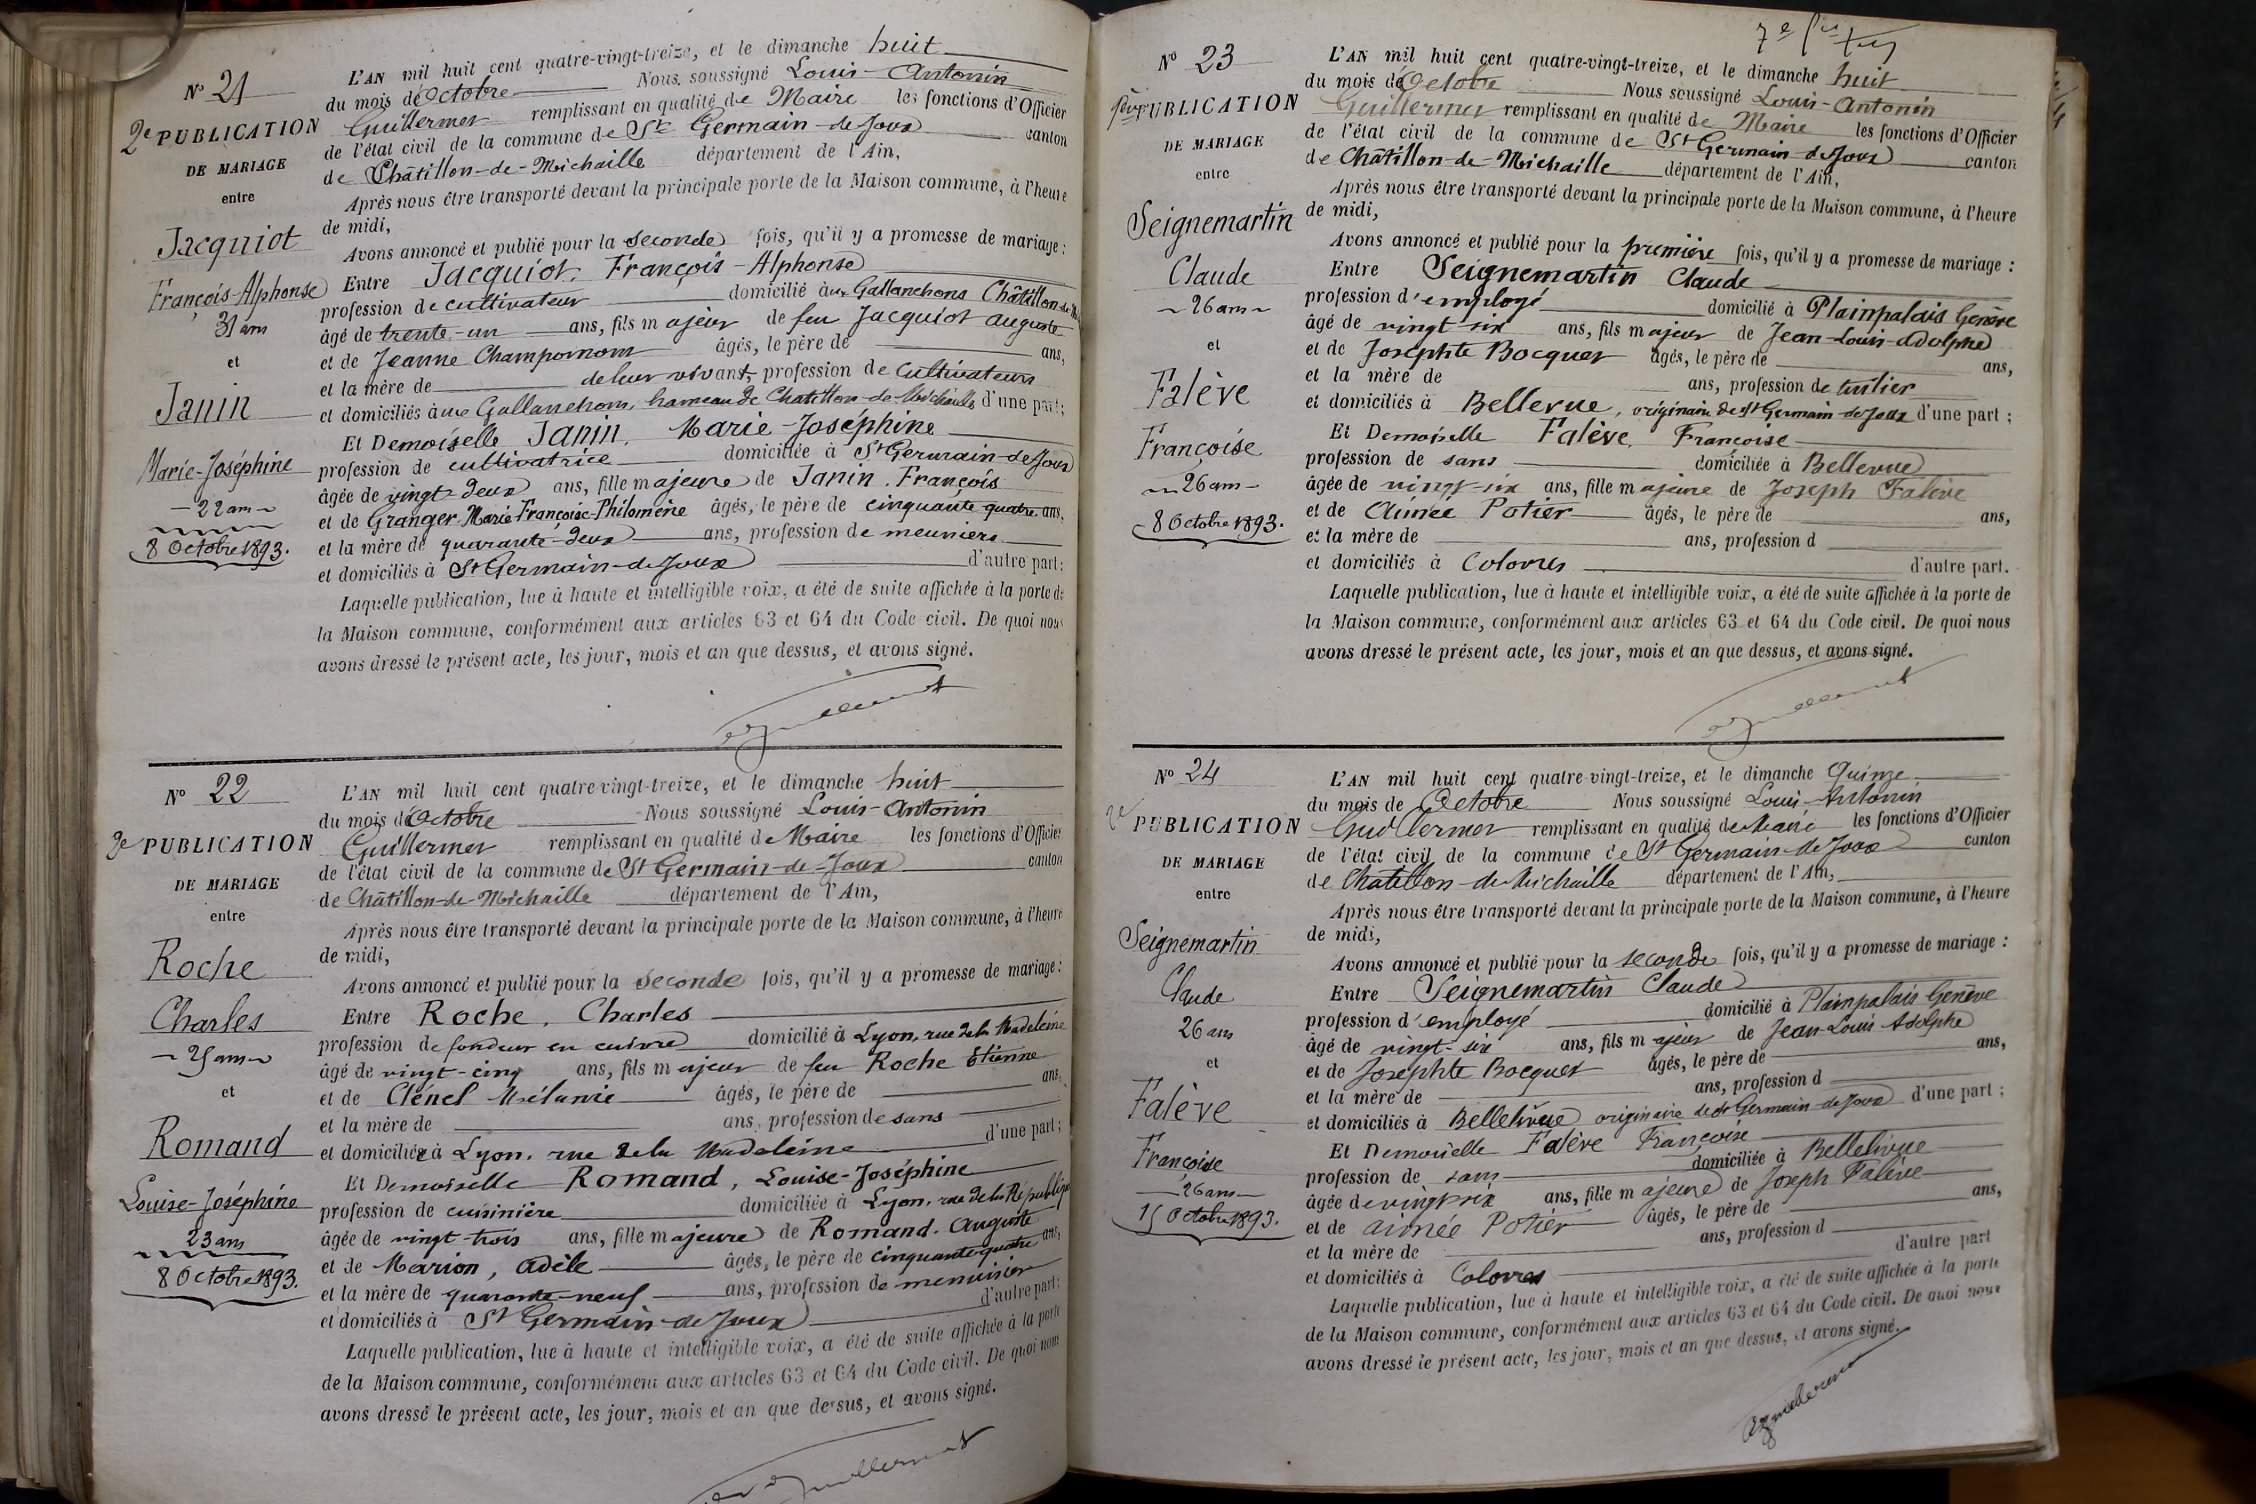 N° 21
2e PUBLICATION
DE MARIAGE
entre
Jacquiot
François-Alphonse
31 ans
et
Janin
Marie-Joséphine
22 ans
8 Octobre 1893.
L'AN mil huit cent quatre-vingt-treize, et le dimanche huit
du mois de Octobre Nous soussigné Louis-Antonin
Guillermet remplissant en qualité de Maire les fonctions d'Officier
de l'état civil de la commune de St Germain-de-Joux canton
de Châtillon-de-Michaille département de l'Ain,
Après nous être transporté devant la principale porte de la Maison commune, à l'heure
de midi,
Avons annoncé et publié pour la seconde fois, qu'il y a promesse de mariage :
Entre Jacquiot, François-Alphonse
profession de cultivateur domicilié aux Gallanchons Châtillon-de-
âgé de trente-un ans, fils majeur de feu Jacquiot Auguste
et de Jeanne âgés, le père de ans,
et la mère de de leur vivant, profession de cultivateurs
et domiciliés aux Gallanchons, hameau de Chatillon-de-Michaille d'une part;
Et Demoiselle Janin, Marie-Joséphine
profession de cultivatrice domiciliée à St Germain-de-Joux
âgée de vingt-deux ans, fille majeure de Janin, François
et de Granger Marie Françoise-Philomène âgés, le père de cinquante quatre ans,
et la mère de quarante-deux ans, profession de meuniers
et domiciliés à St Germain-de-Joux d'autre part;
Laquelle publication, lue à haute et intelligible voix, a été de suite affichée à la porte de
la Maison commune, conformément aux articles 63 et 64 du Code civil. De quoi nous
avons dressé le présent acte, les jour, mois et an que dessus, et avons signé.
Guillermet
N° 22
2e PUBLICATION
DE MARIAGE
entre
Roche
Charles
25 ans
et
Romand
Louise-Joséphine
23 ans
8 Octobre 1893.
L'AN mil huit cent quatre-vingt-treize, et le dimanche huit
du mois de Octobre Nous soussigné Louis-Antonin
Guillermet remplissant en qualité de Maire les fonctions d'Officier
de l'état civil de la commune de St Germain-de-Joux canton
de Châtillon-de-Michaille département de l'Ain,
Après nous être transporté devant la principale porte de la Maison commune, à l'heure
de midi,
Avons annoncé et publié pour la seconde fois, qu'il y a promesse de mariage :
Entre Roche, Charles
profession de fondeur en cuivre domicilié à Lyon, rue de la Madeleine
âgé de vingt-cinq ans, fils majeur de feu Roche Etienne
et de Clénel Mélanie âgés, le père de ans,
et la mère de ans, profession de sans
et domiciliée à Lyon, rue de la Madeleine d'une part;
Et Demoiselle Romand, Louise-Joséphine
profession de cuisinière domiciliée à Lyon, rue de la République
âgée de vingt-trois ans, fille majeure de Romand, Auguste
et de Marion, Adèle âgés, le père de cinquante-quatre ans,
et la mère de quarante-neuf ans, profession de menuisier
et domiciliés à St Germain-de-Joux d'autre part;
Laquelle publication, lue à haute et intelligible voix, a été de suite affichée à la porte
de la Maison commune, conformément aux articles 63 et 64 du Code civil. De quoi nous
avons dressé le présent acte, les jour, mois et an que dessus, et avons signé.
Guillermet
7e
N° 23
1ère PUBLICATION
DE MARIAGE
entre
Seignemartin
Claude
26 ans
et
Falève
Françoise
26 ans
8 Octobre 1893.
L'AN mil huit cent quatre-vingt-treize, et le dimanche huit
du mois de Octobre Nous soussigné Louis-Antonin
Guillermet remplissant en qualité de Maire les fonctions d'Officier
de l'état civil de la commune de St Germain-de-Joux canton
de Châtillon-de-Michaille département de l'Ain,
Après nous être transporté devant la principale porte de la Maison commune, à l'heure
de midi,
Avons annoncé et publié pour la première fois, qu'il y a promesse de mariage :
Entre Seignemartin Claude
profession d'employé domicilié à Plainpalais Genève
âgé de vingt-six ans, fils majeur de Jean-Louis-Adolphe
et de Josephte Bocquet âgés, le père de ans,
et la mère de ans, profession de
et domiciliés à Bellevue, originaire de St Germain-de-Joux d'une part;
Et Demoiselle Falève Françoise
profession de sans domiciliée à Bellevue
âgée de vingt-six ans, fille majeure de Joseph Falève
et de Aimée Potier âgés, le père de ans,
et la mère de ans, profession d
et domiciliés à Colovres d'autre part.
Laquelle publication, lue à haute et intelligible voix, a été de suite affichée à la porte de
la Maison commune, conformément aux articles 63 et 64 du Code civil. De quoi nous
avons dressé le présent acte, les jour, mois et an que dessus, et avons signé.
Guillermet
N° 24
2e PUBLICATION
DE MARIAGE
entre
Seignemartin
Claude
26 ans
et
Falève
Françoise
26 ans
15 Octobre 1893.
L'AN mil huit cent quatre-vingt-treize, et le dimanche Quinze
du mois de Octobre Nous soussigné Louis-Antonin
Guillermet remplissant en qualité de Maire les fonctions d'Officier
de l'état civil de la commune de St Germain-de-Joux canton
de Châtillon-de-Michaille département de l'Ain,
Après nous être transporté devant la principale porte de la Maison commune, à l'heure
de midi,
Avons annoncé et publié pour la seconde fois, qu'il y a promesse de mariage :
Entre Seignemartin Claude
profession d'employé domicilié à Plainpalais Genève
âgé de vingt-six ans, fils majeur de Jean-Louis Adolphe
et de Josephte Bocquet âgés, le père de ans,
et la mère de ans, profession d
et domiciliés à Bellerive originaire de St Germain-de-Joux d'une part;
Et Demoiselle Falève Françoise
profession de sans domiciliée à Bellerive
âgée de vingt six ans, fille majeure de Joseph Falève
et de Aimée Potier âgés, le père de ans,
et la mère de ans, profession d
et domiciliés à Colovres d'autre part
Laquelle publication, lue à haute et intelligible voix, a été de suite affichée à la porte
de la Maison commune, conformément aux articles 63 et 64 du Code civil. De quoi nous
avons dressé le présent acte, les jour, mois et an que dessus, et avons signé.
Guillermet